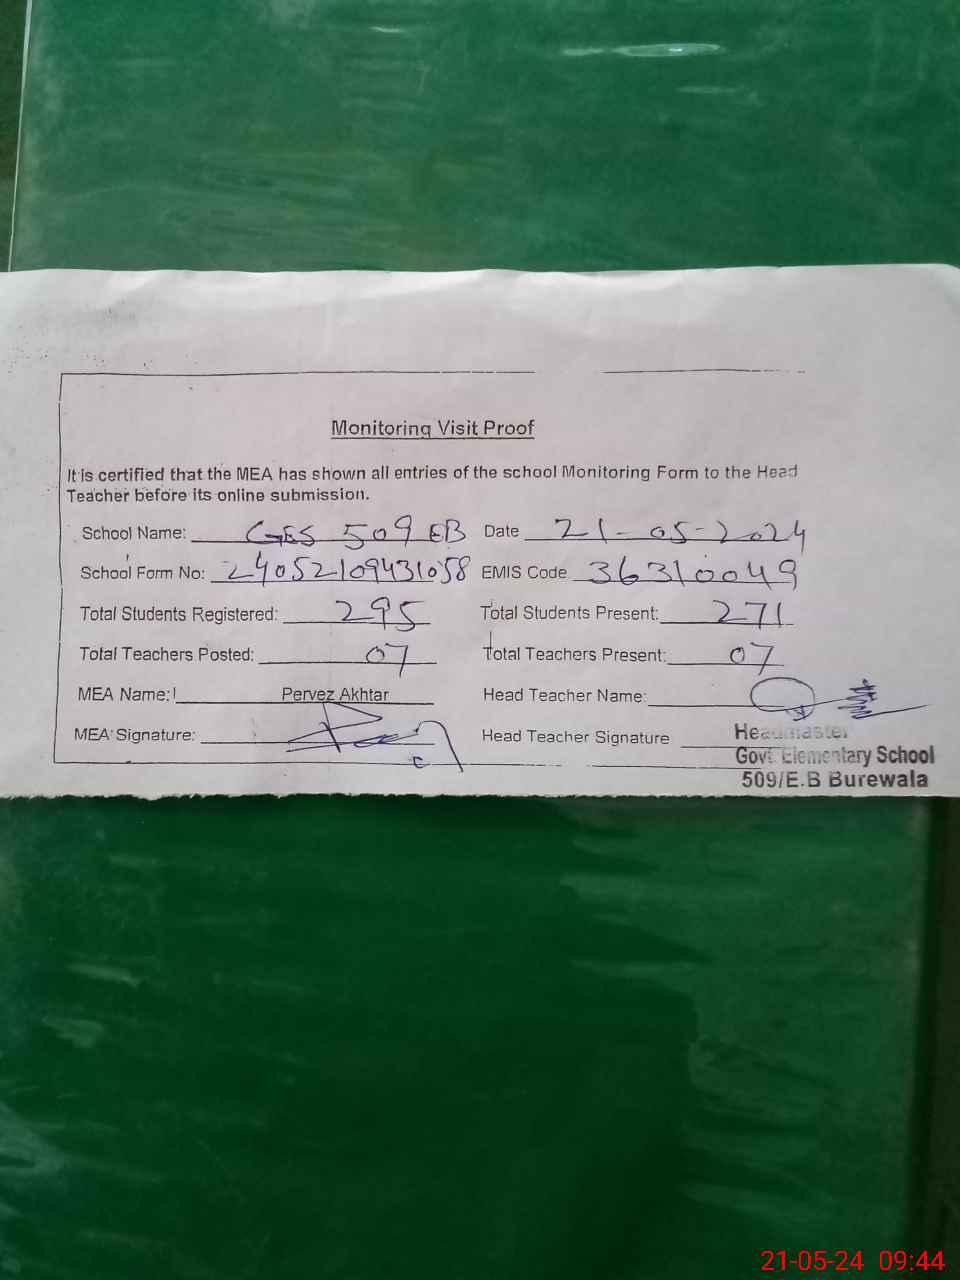 Monitoring Visit Proof
It is certified that the MEA has shown all entries of the school Monitoring Form to the Head
Teacher before its online submission.
School Name: GES 509 EB Date 21-05-2024
School Form No: 24052109431058 EMIS Code 36310049
Total Students Registered: 295 Total Students Present: 271
Total Teachers Posted: 07 Total Teachers Present: 07
MEA Name: Pervez Akhtar Head Teacher Name:
MEA Signature: Head Teacher Signature
Headmaster
Govt. Elementary School
509/E.B Burewala
21-05-24 09:44